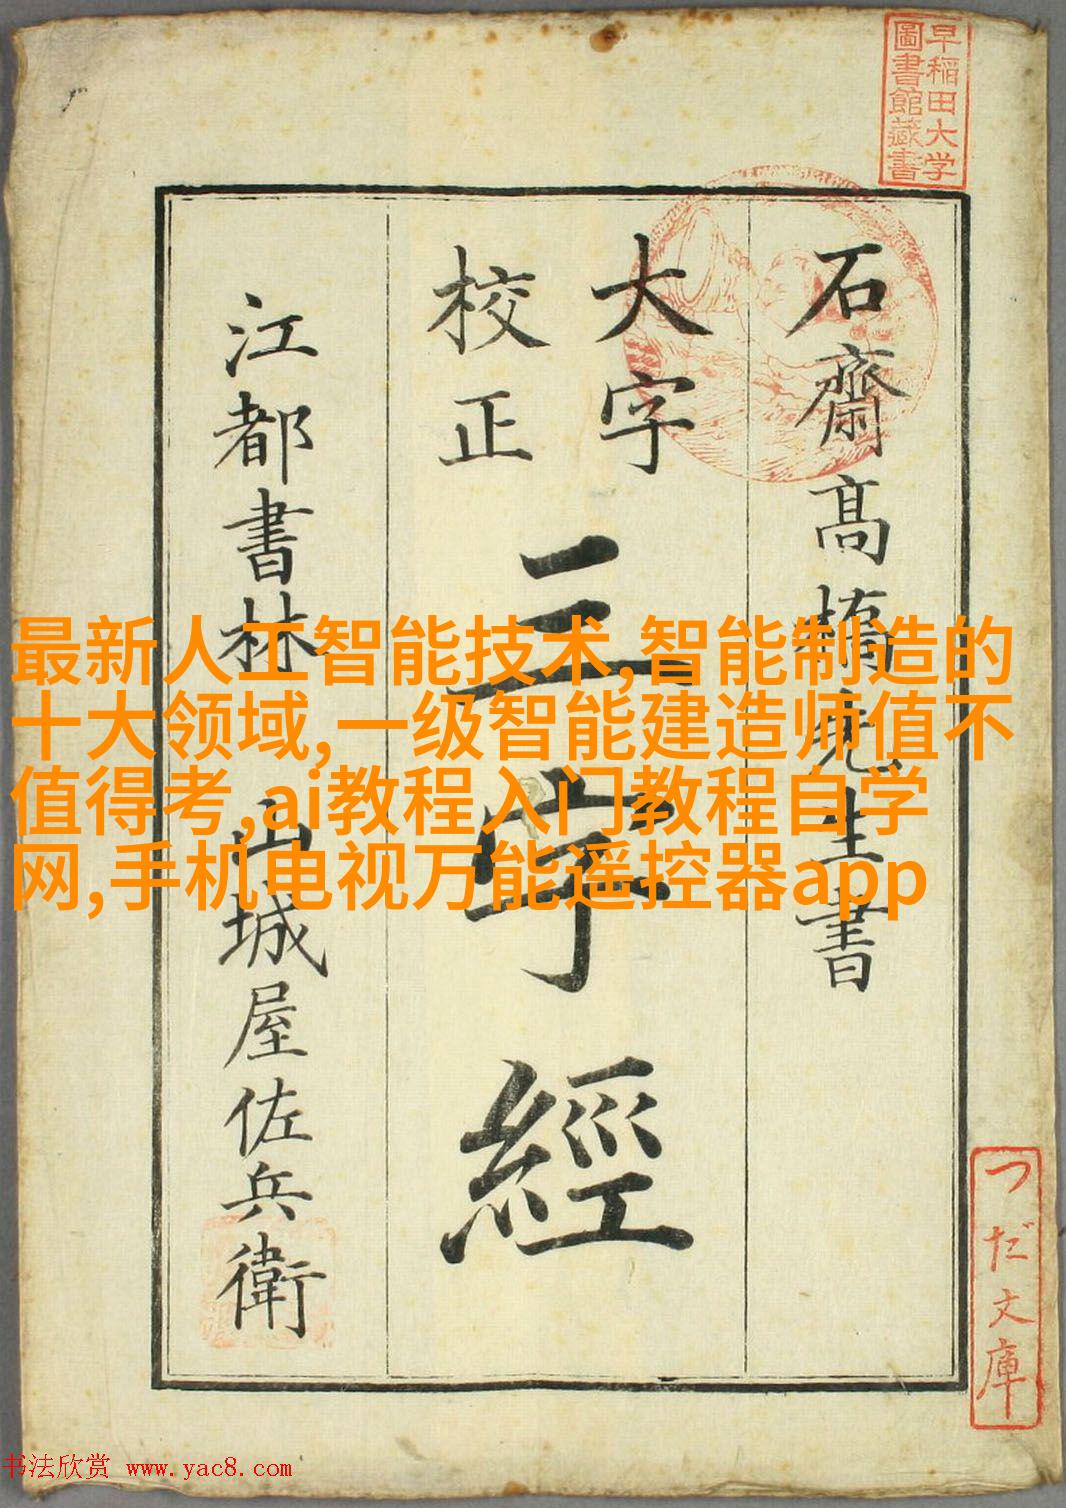 早稲田大学
圖書館藏書
石齋高橋先生書
大字
校正
三字經
江都書林 山城屋佐兵衛
つだ文庫
最新人工智能技术,智能制造的
十大领域,一级智能建造师值不
值得考,ai教程入门教程自学
网,手机电视万能遥控器app
书法欣赏 www.yac8.com